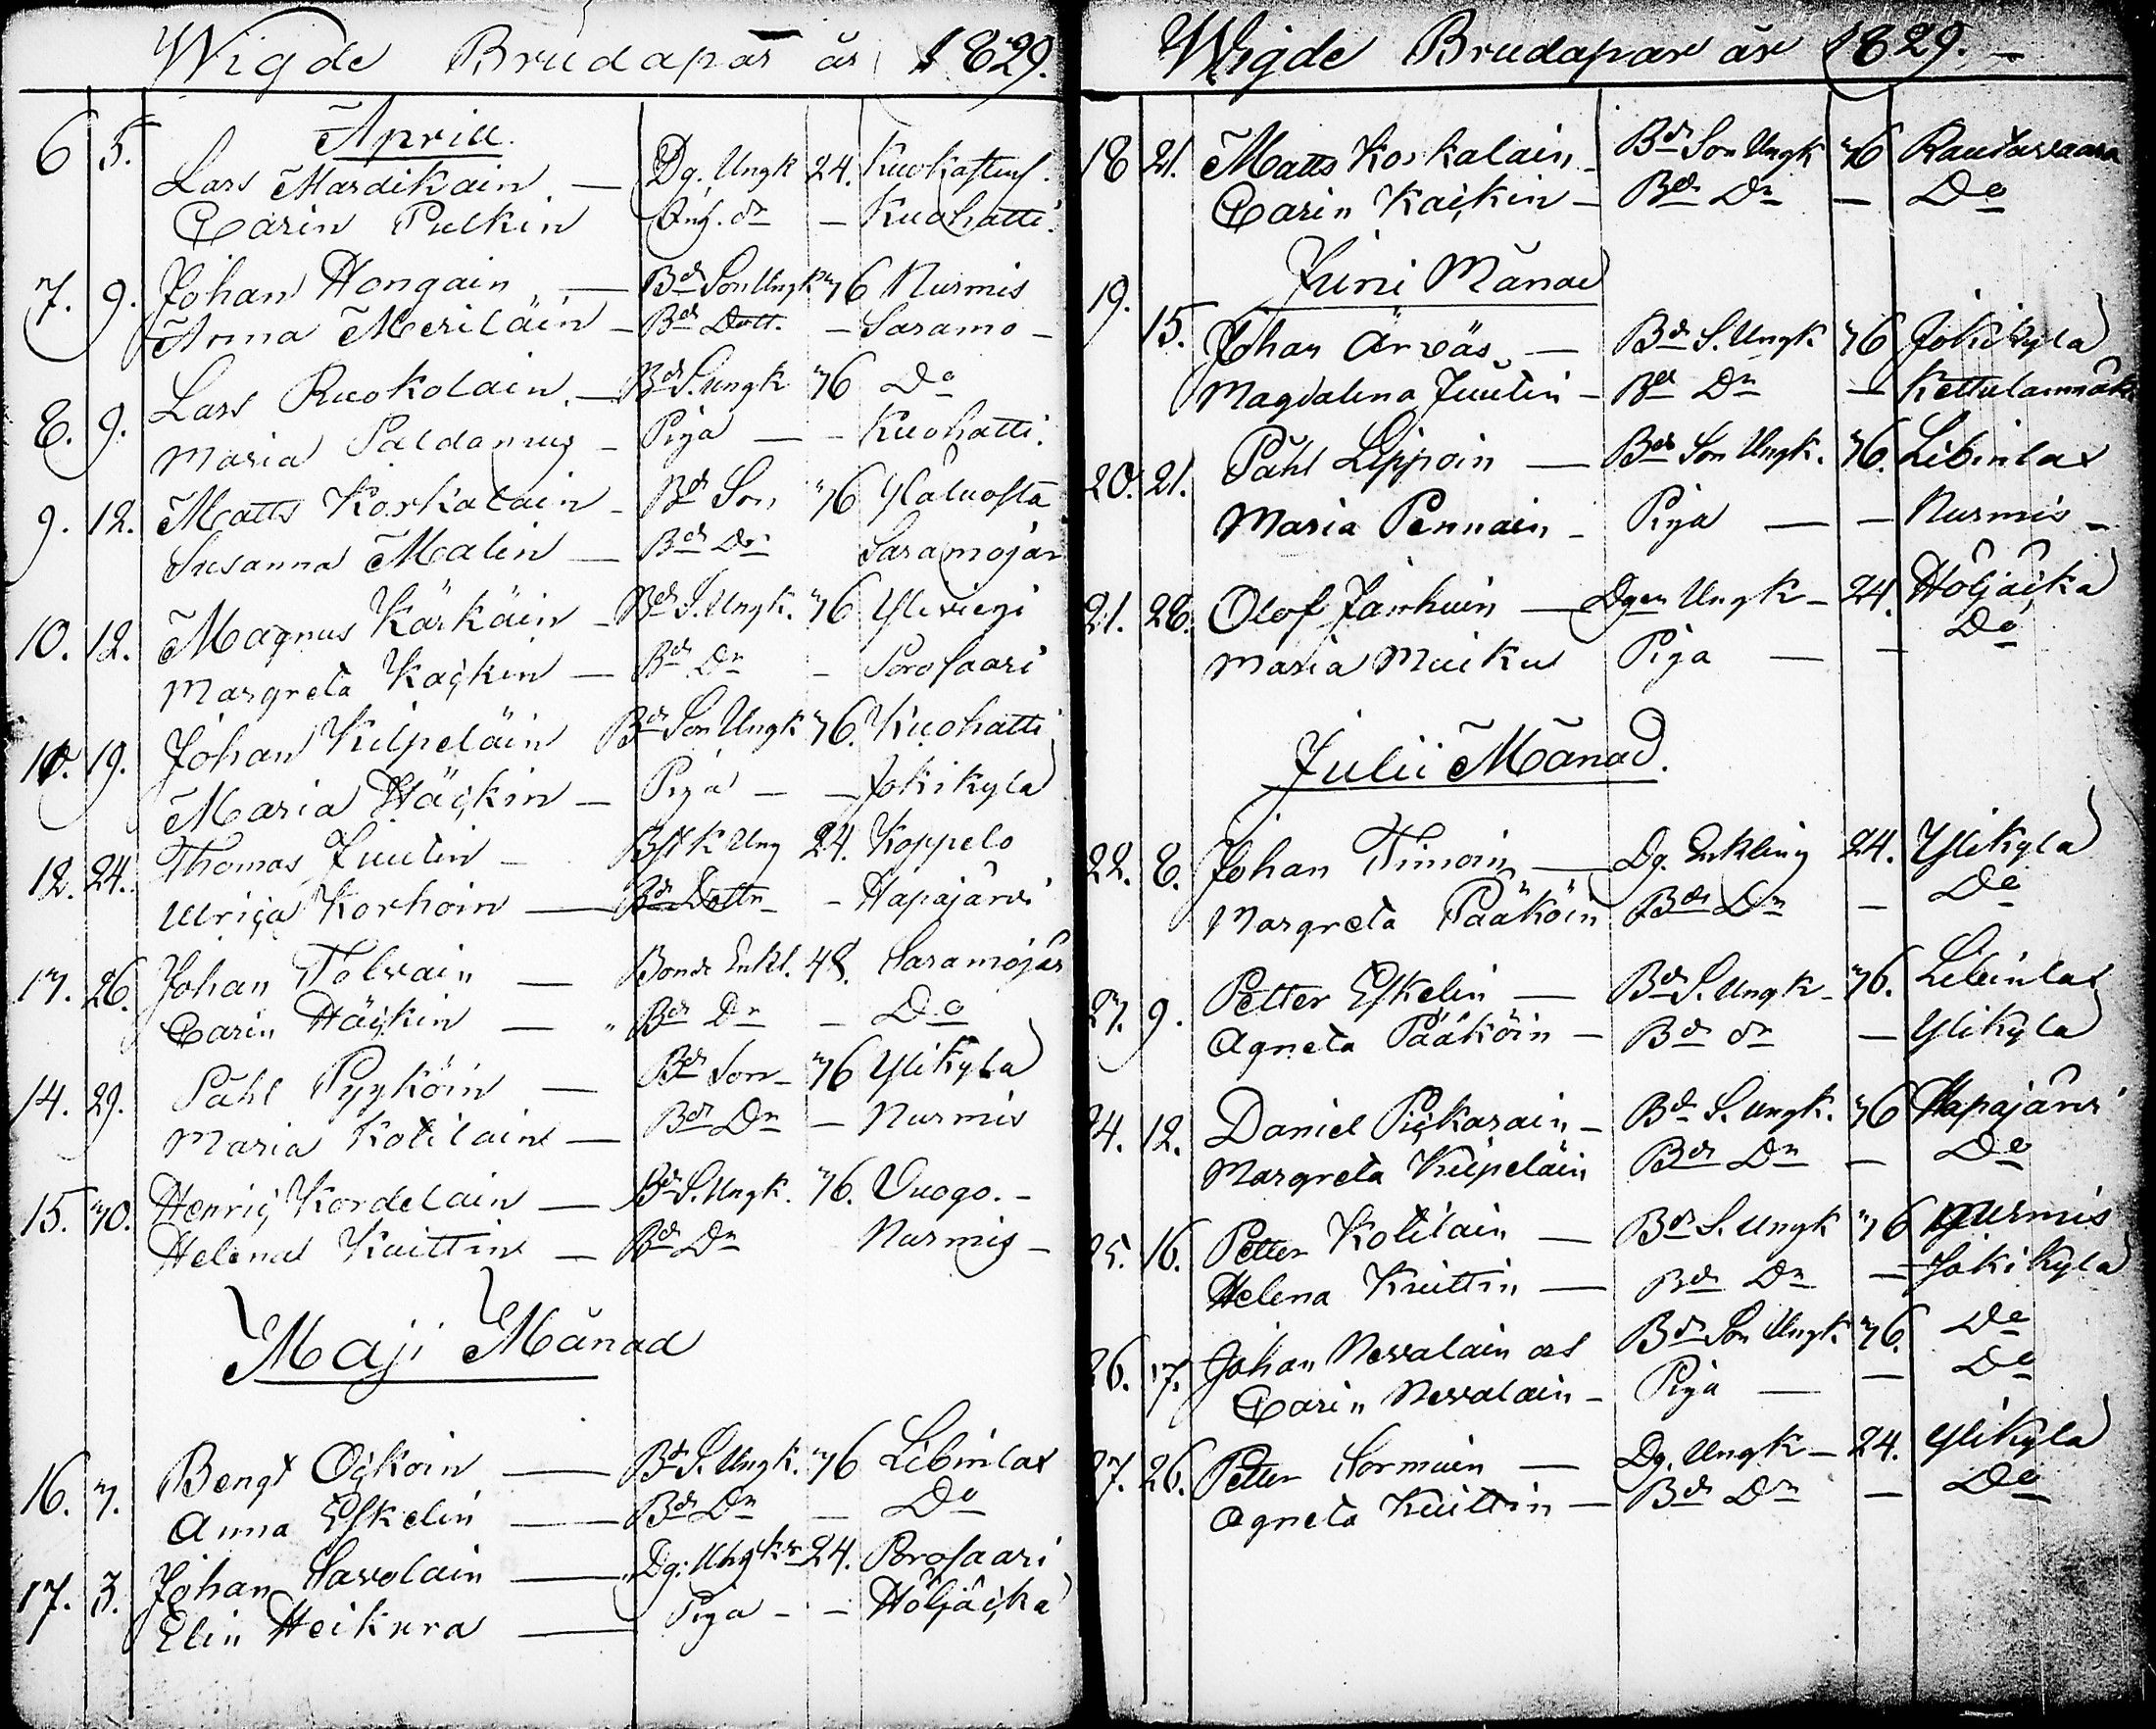 Wigde Brudapar år 1829.
April
6 5. Lars Mardikain — Dg. Ungk 24.
Carin Pulkin — Kuohatti.
7. 9. Johan Hongain — Bde Son Ungk 36 Nurmis
Anna Meriläin — Bde Dott. — Saramo —
8. 9. Lars Ruokolain. — Bde S. Ungk 36 Do
Maria Saldamus — Piga — — Kuohatti.
9. 12. Matts Korkalain — Bde Son 36
Susanna Malin — Bde Dr Saramojär
10. 12. Magnus Kärkäin — Bde S. Ungk. 36 Ylivieji
Margreta Kaickin — Bde Dr — Porosaari
11. 19. Johan Kilpeläin Bde Son Ungk 36. Kuohatti
Maria Häickin — Piga — — Jokikylä
12. 24. Thomas Juutin — 24. Koppelo
Ulrica Korhoin — Bde Dottr — Hapajärvi
13. 26 Johan Tolvain — Bonde Enkl. 48. Saramojär
Carin Häickin — Bde Dr — Do
14. 29. Påhl Pyyköin — Bde Son — 36 Ylikylä
Maria Kotilain — Bde Dr — Nurmis
15. 30. Henric Kordelain — Bde S. Ungk. 36. Vuogo. —
Helena Kuittin — Bde Dr Nurmis —
Maji Månad
16. 3. Bengt Oickoin — Bde S. Ungk. 36 Libinlax
Anna Eskelin — Bde Dr — Do
17. 3. Johan Savolain — Dg. Ungkr 24. Porosaari
Elin Heikura — Piga — — Höljäckä
Wigde Brudapar år 1829. —
18 21. Matts Korkalain — Bde Son Ungk 36 Rautavaara
Carin Kaickin — Bde Dr — Do
Juni Månad
19. 15. Johan Ärväs. — Bde S. Ungk 36 Jokikylä
Magdalena Juutin — Bde Dr —
20. 21. Påhl Lippoin — Bde Son Ungk. 36. Libinlax
Maria Pennain — Piga — — Nurmis —
21. 28. Olof Janhuin — Dgen Ungk — 24. Höljäckä
Maria Muikku Piga — — Do
Julii Månad.
22. 8. Johan Timoin — Dg. Enkling 24. Ylikylä
Margreta Pääköin Bde Dr — Do
23. 9. Petter Eskelin — Bde S. Ungk — 36. Libinlax
Agneta Pääköin — Bde dr — Ylikylä
24. 12. Daniel Pickarain — Bde S. Ungk. 36 Hapajärvi
Margreta Kilpeläin Bde Dr — Do
25. 16. Petter Kotilain — Bde S. Ungk 36 Nurmis
Helena Kuittin — Bde Dr — Jokikylä
26. 17. Johan Nevalain Bde Son Ungk. 36. Do
Carin Nevalain — Piga — — Do
27. 26. Petter Sormuin — Dg. Ungk — 24. Ylikylä
Agneta Kuittin — Bde Dr — Do